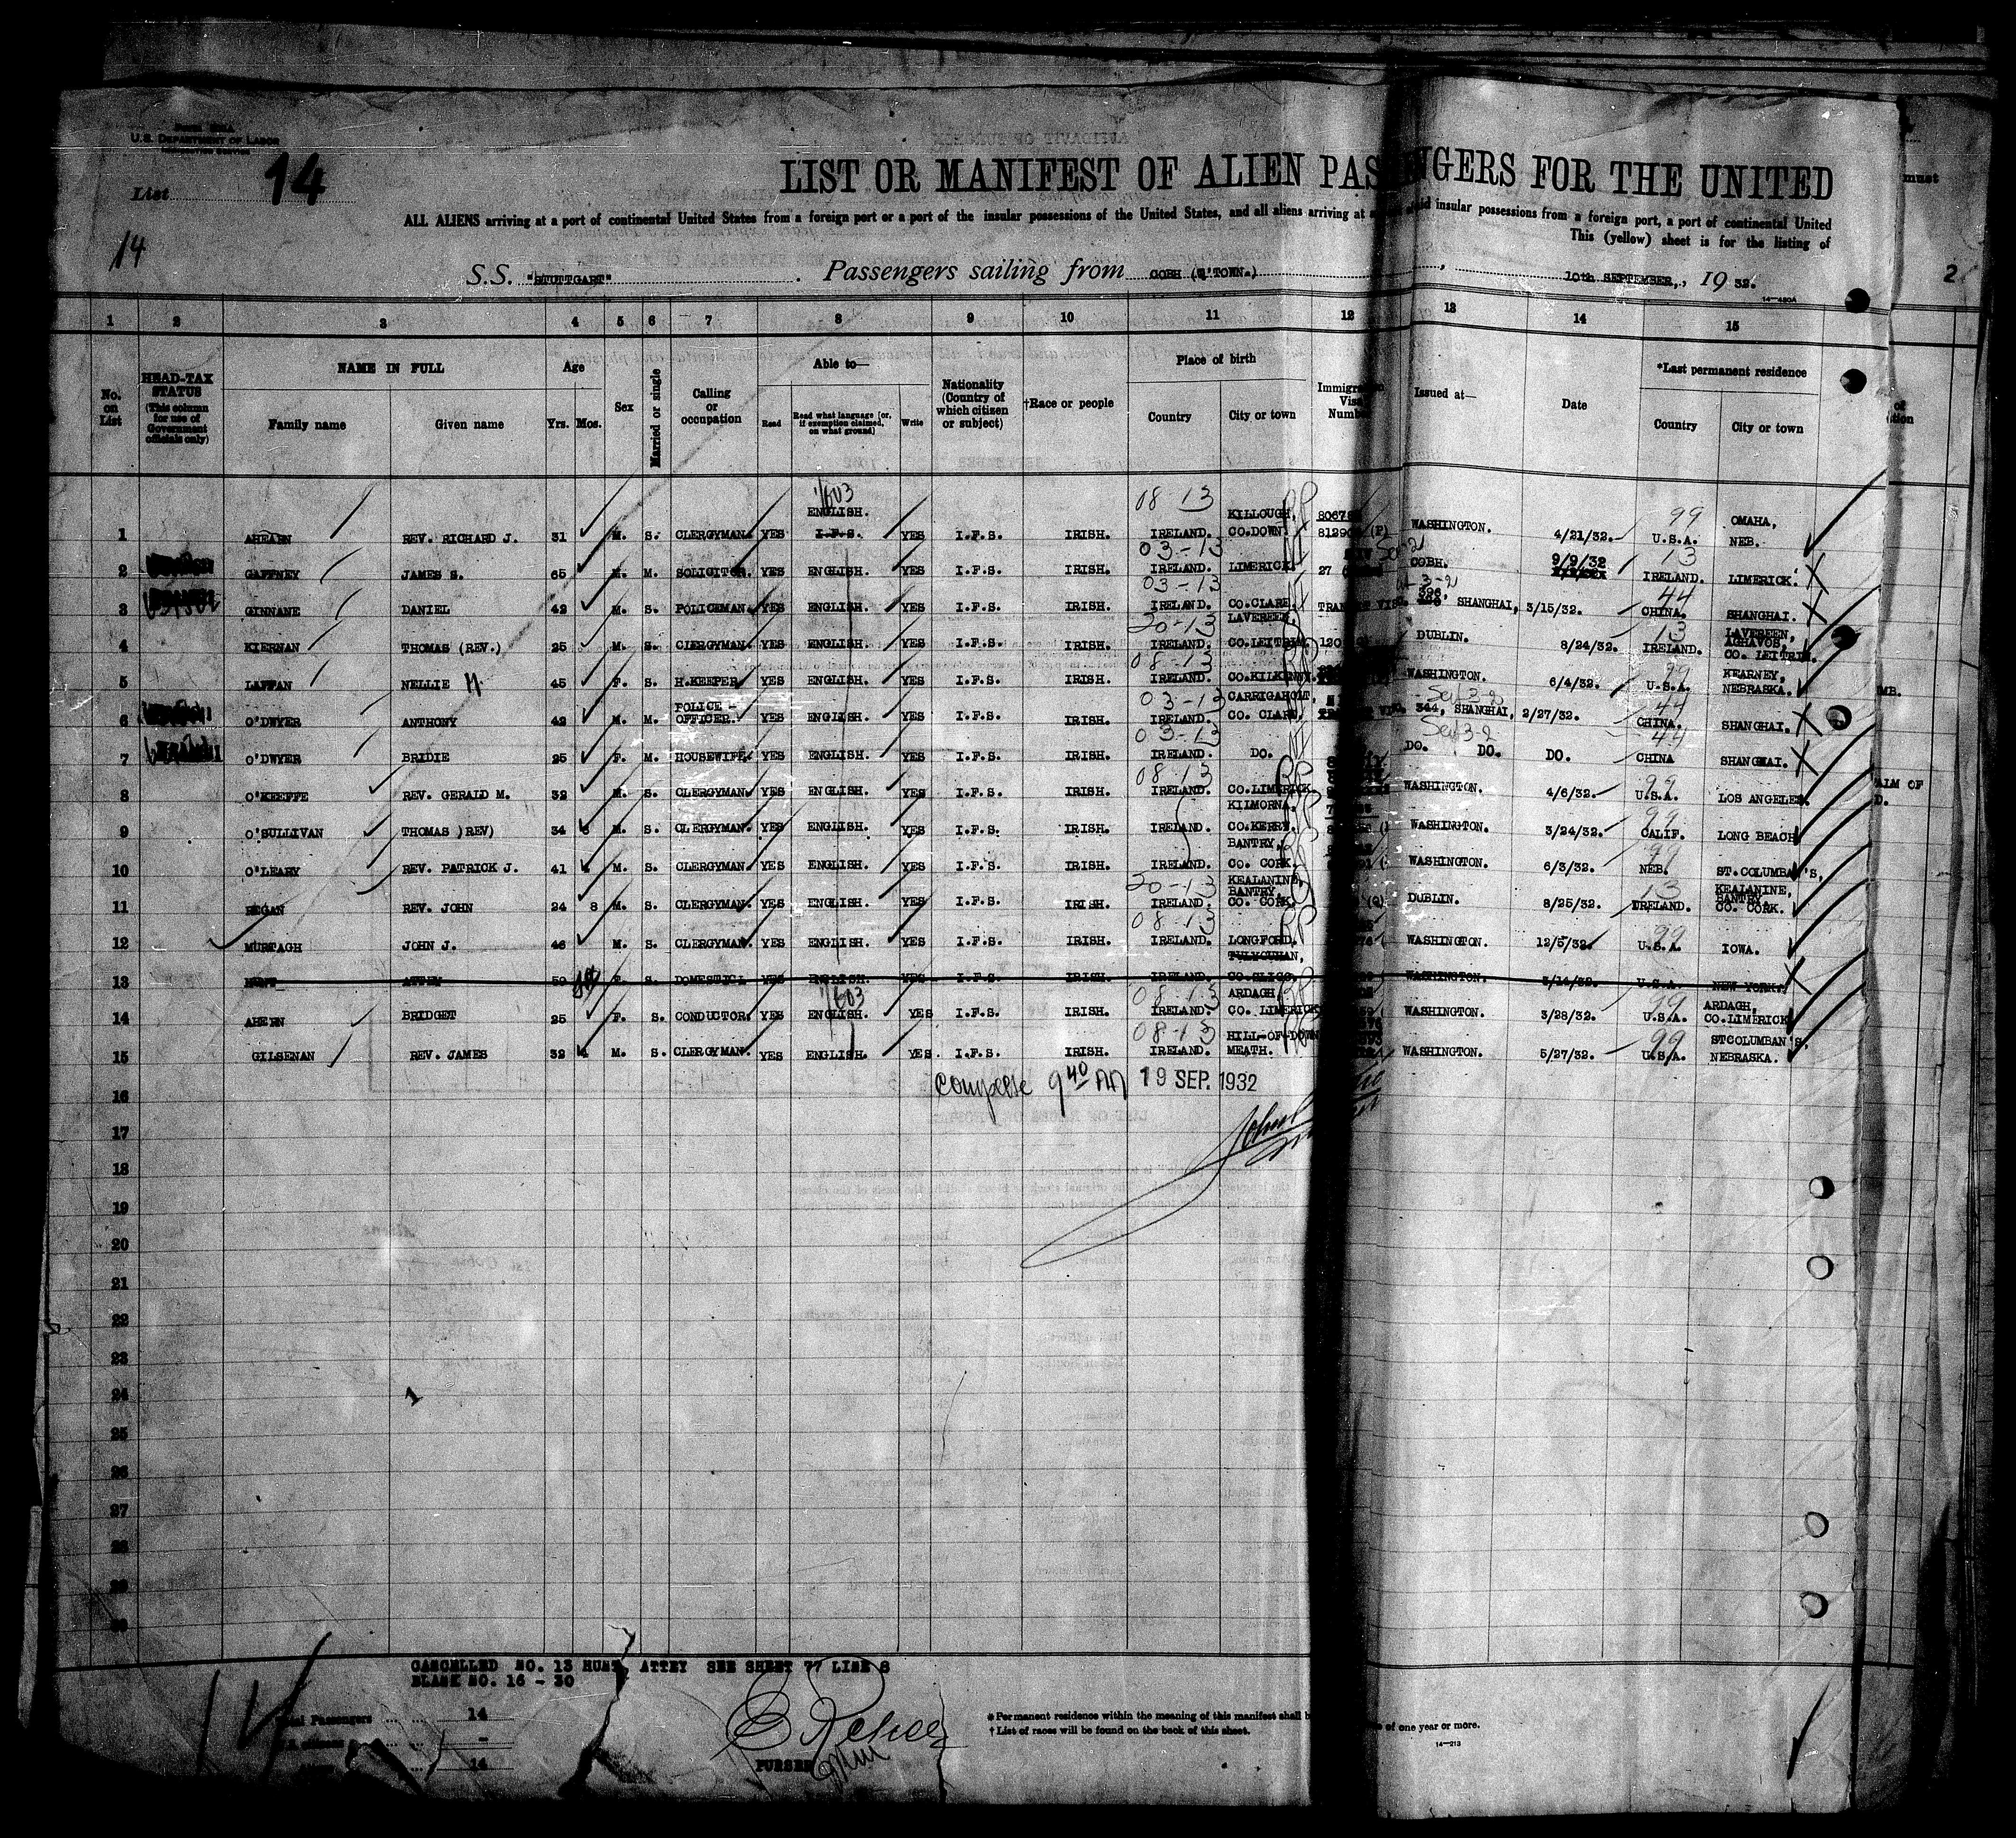 U.S. DEPARTMENT OF LABOR
List 14
14
LIST OR MANIFEST OF ALIEN PASSENGERS FOR THE UNITED
must
ALL ALIENS arriving at a port of continental United States from a foreign port or a port of the insular possessions of the United States, and all aliens arriving at insular possessions from a foreign port, a port of continental United
This (yellow) sheet is for the listing of
S.S. "STUTTGART" . Passengers sailing from COBH (Q'TOWN.) , 10th SEPTEMBER, , 19 32.
2
14-480A
1 2 3 4 5 6 7 8 9 10 11 12 13 14 15
No. on List
HEAD-TAX STATUS (This column for use of Government officials only)
NAME IN FULL Family name Given name
Age Yrs. Mos.
Sex
Married or single
Calling or occupation
Able to— Read Read what language [or, if exemption claimed, on what ground] Write
Nationality (Country of which citizen or subject)
†Race or people
Place of birth Country City or town
Immigration Visa Number
Issued at—
Date
*Last permanent residence Country City or town
1 AHEARN REV. RICHARD J. 31 M. S. CLERGYMAN. YES ENGLISH. I.F.S. YES I.F.S. IRISH. 08-13 IRELAND. KILLOUGH, CO.DOWN. (P) WASHINGTON. 4/21/32. 99 U.S.A. OMAHA, NEB.
2 GAFFNEY JAMES S. 65 M. M. SOLICITOR. YES ENGLISH. YES I.F.S. IRISH. 03-13 IRELAND. LIMERICK. 27 COBH. 9/9/32 13 IRELAND. LIMERICK. X
3 GINNANE DANIEL 42 M. S. POLICEMAN. YES ENGLISH. YES I.F.S. IRISH. 03-13 IRELAND. CO.CLARE. 326, SHANGHAI, 3/15/32. 44 CHINA. SHANGHAI. X
4 KIERNAN THOMAS (REV.) 25 M. S. CLERGYMAN. YES ENGLISH. YES I.F.S. IRISH. 20-13 IRELAND. LAVEREEN, CO.LEITRIM. DUBLIN. 8/24/32. 13 IRELAND. LAVEREEN, AGHAVOS, CO. LEITRIM.
5 LAFFAN NELLIE 45 F. S. H.KEEPER. YES ENGLISH. YES I.F.S. IRISH. 08-13 IRELAND. CO.KILKENNY. WASHINGTON. 6/4/32. 99 U.S.A. KEARNEY, NEBRASKA.
6 O'DWYER ANTHONY 42 M. M. POLICE - OFFICER. YES ENGLISH. YES I.F.S. IRISH. 03-13 IRELAND. CARRIGAHOLT, CO. CLARE. 344, SHANGHAI, 2/27/32. 44 CHINA. SHANGHAI. X
7 O'DWYER BRIDIE 25 F. M. HOUSEWIFE. YES ENGLISH. YES I.F.S. IRISH. 03-13 IRELAND. DO. DO. DO. DO. 44 CHINA SHANGHAI. X
8 O'KEEFFE REV. GERALD M. 32 M. S. CLERGYMAN. YES ENGLISH. YES I.F.S. IRISH. 08-13 IRELAND. CO.LIMERICK. WASHINGTON. 4/6/32. 99 U.S.A. LOS ANGELES.
9 O'SULLIVAN THOMAS )REV) 34 M. S. CLERGYMAN. YES ENGLISH. YES I.F.S. IRISH. IRELAND. KILMORNA, CO.KERRY. WASHINGTON. 3/24/32. 99 CALIF. LONG BEACH
10 O'LEARY REV. PATRICK J. 41 M. S. CLERGYMAN. YES ENGLISH. YES I.F.S. IRISH. IRELAND. BANTRY, CO. CORK. WASHINGTON. 6/3/32. 99 NEB. ST.COLUMBAN'S,
11 REGAN REV. JOHN 24 8 M. S. CLERGYMAN. YES ENGLISH. YES I.F.S. IRISH. 20-13 IRELAND. KEALANINE, BANTRY, CO. CORK. (Q) DUBLIN. 8/25/32. 13 IRELAND. KEALANINE, BANTRY, CO. CORK.
12 MURTAGH JOHN J. 46 M. S. CLERGYMAN. YES ENGLISH. YES I.F.S. IRISH. 08-13 IRELAND. LONGFORD. WASHINGTON. 12/5/32. 99 U.S.A. IOWA.
13 HUNT ATTEY 50 F. S. DOMESTIC. YES ENGLISH. YES I.F.S. IRISH. IRELAND. CO.SLIGO. WASHINGTON. 3/14/32. U.S.A. NEW YORK. X
14 AHERN BRIDGET 25 F. S. CONDUCTOR. YES ENGLISH. YES I.F.S. IRISH. 08-13 IRELAND. ARDAGH, CO. LIMERICK WASHINGTON. 3/28/32. 99 U.S.A. ARDAGH, CO.LIMERICK
15 GILSENAN REV. JAMES 39 M. S. CLERGYMAN. YES ENGLISH. YES. I.F.S. IRISH. 08-13 IRELAND. HILL-OF-DOWN MEATH. WASHINGTON. 5/27/32. 99 U.S.A. STCOLUMBAN'S, NEBRASKA.
16 9 40 AM 19 SEP. 1932
17
18
19
20
21
22
23
24
25
26
27
28
29
30
CANCELLED NO. 13 HUNT, ATTEY SEE SHEET 77 LINE 8
BLANK NO. 16 - 30
Total Passengers 14
-
14
PURSER
* Permanent residence within the meaning of this manifest shall of one year or more.
† List of races will be found on the back of this sheet.
14-213